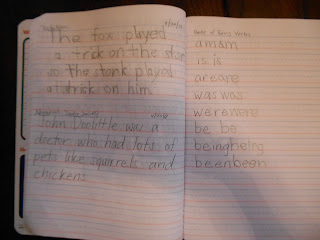 The fox played
a trick on the stork
so the stork played
a trick on him.
John Doolittle was a
doctor who had lots of
pets like squirrels and
chickens
State of Being Verbs
am am
is is
are are
was was
were were
be be
being being
been been